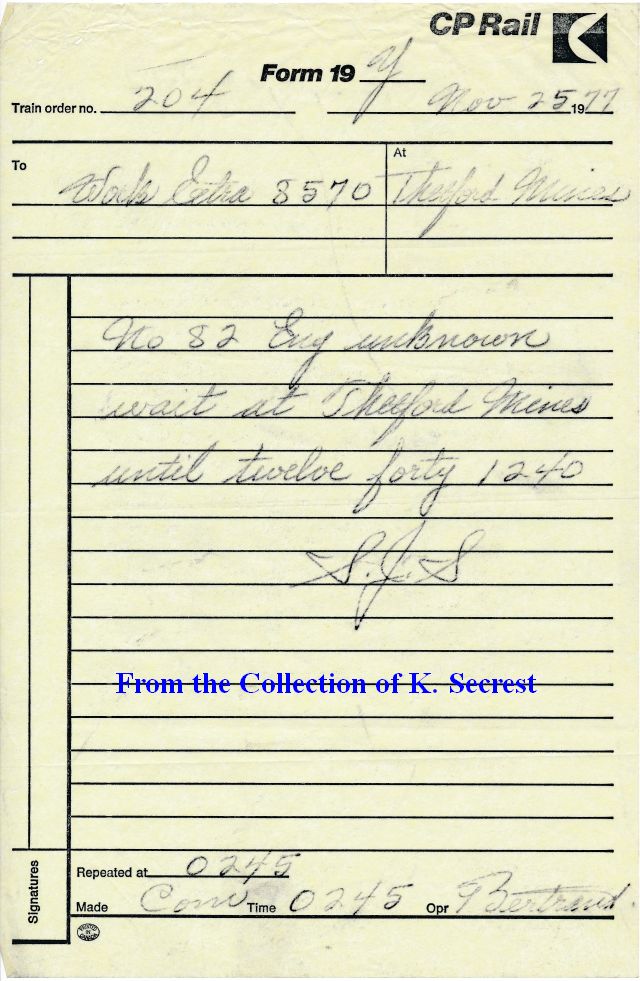 CP Rail
Form 19 Y
Train order no. 204 Nov 25 1977
To Work Extra 8570 At Thetford Mines
No 82 Eng unknown
wait at Thetford Mines
until twelve forty 1240
S.J.S
From the Collection of K. Secrest
Signatures
Repeated at 0245
Made Com Time 0245 Opr Bertrand.
PRINTED IN CANADA